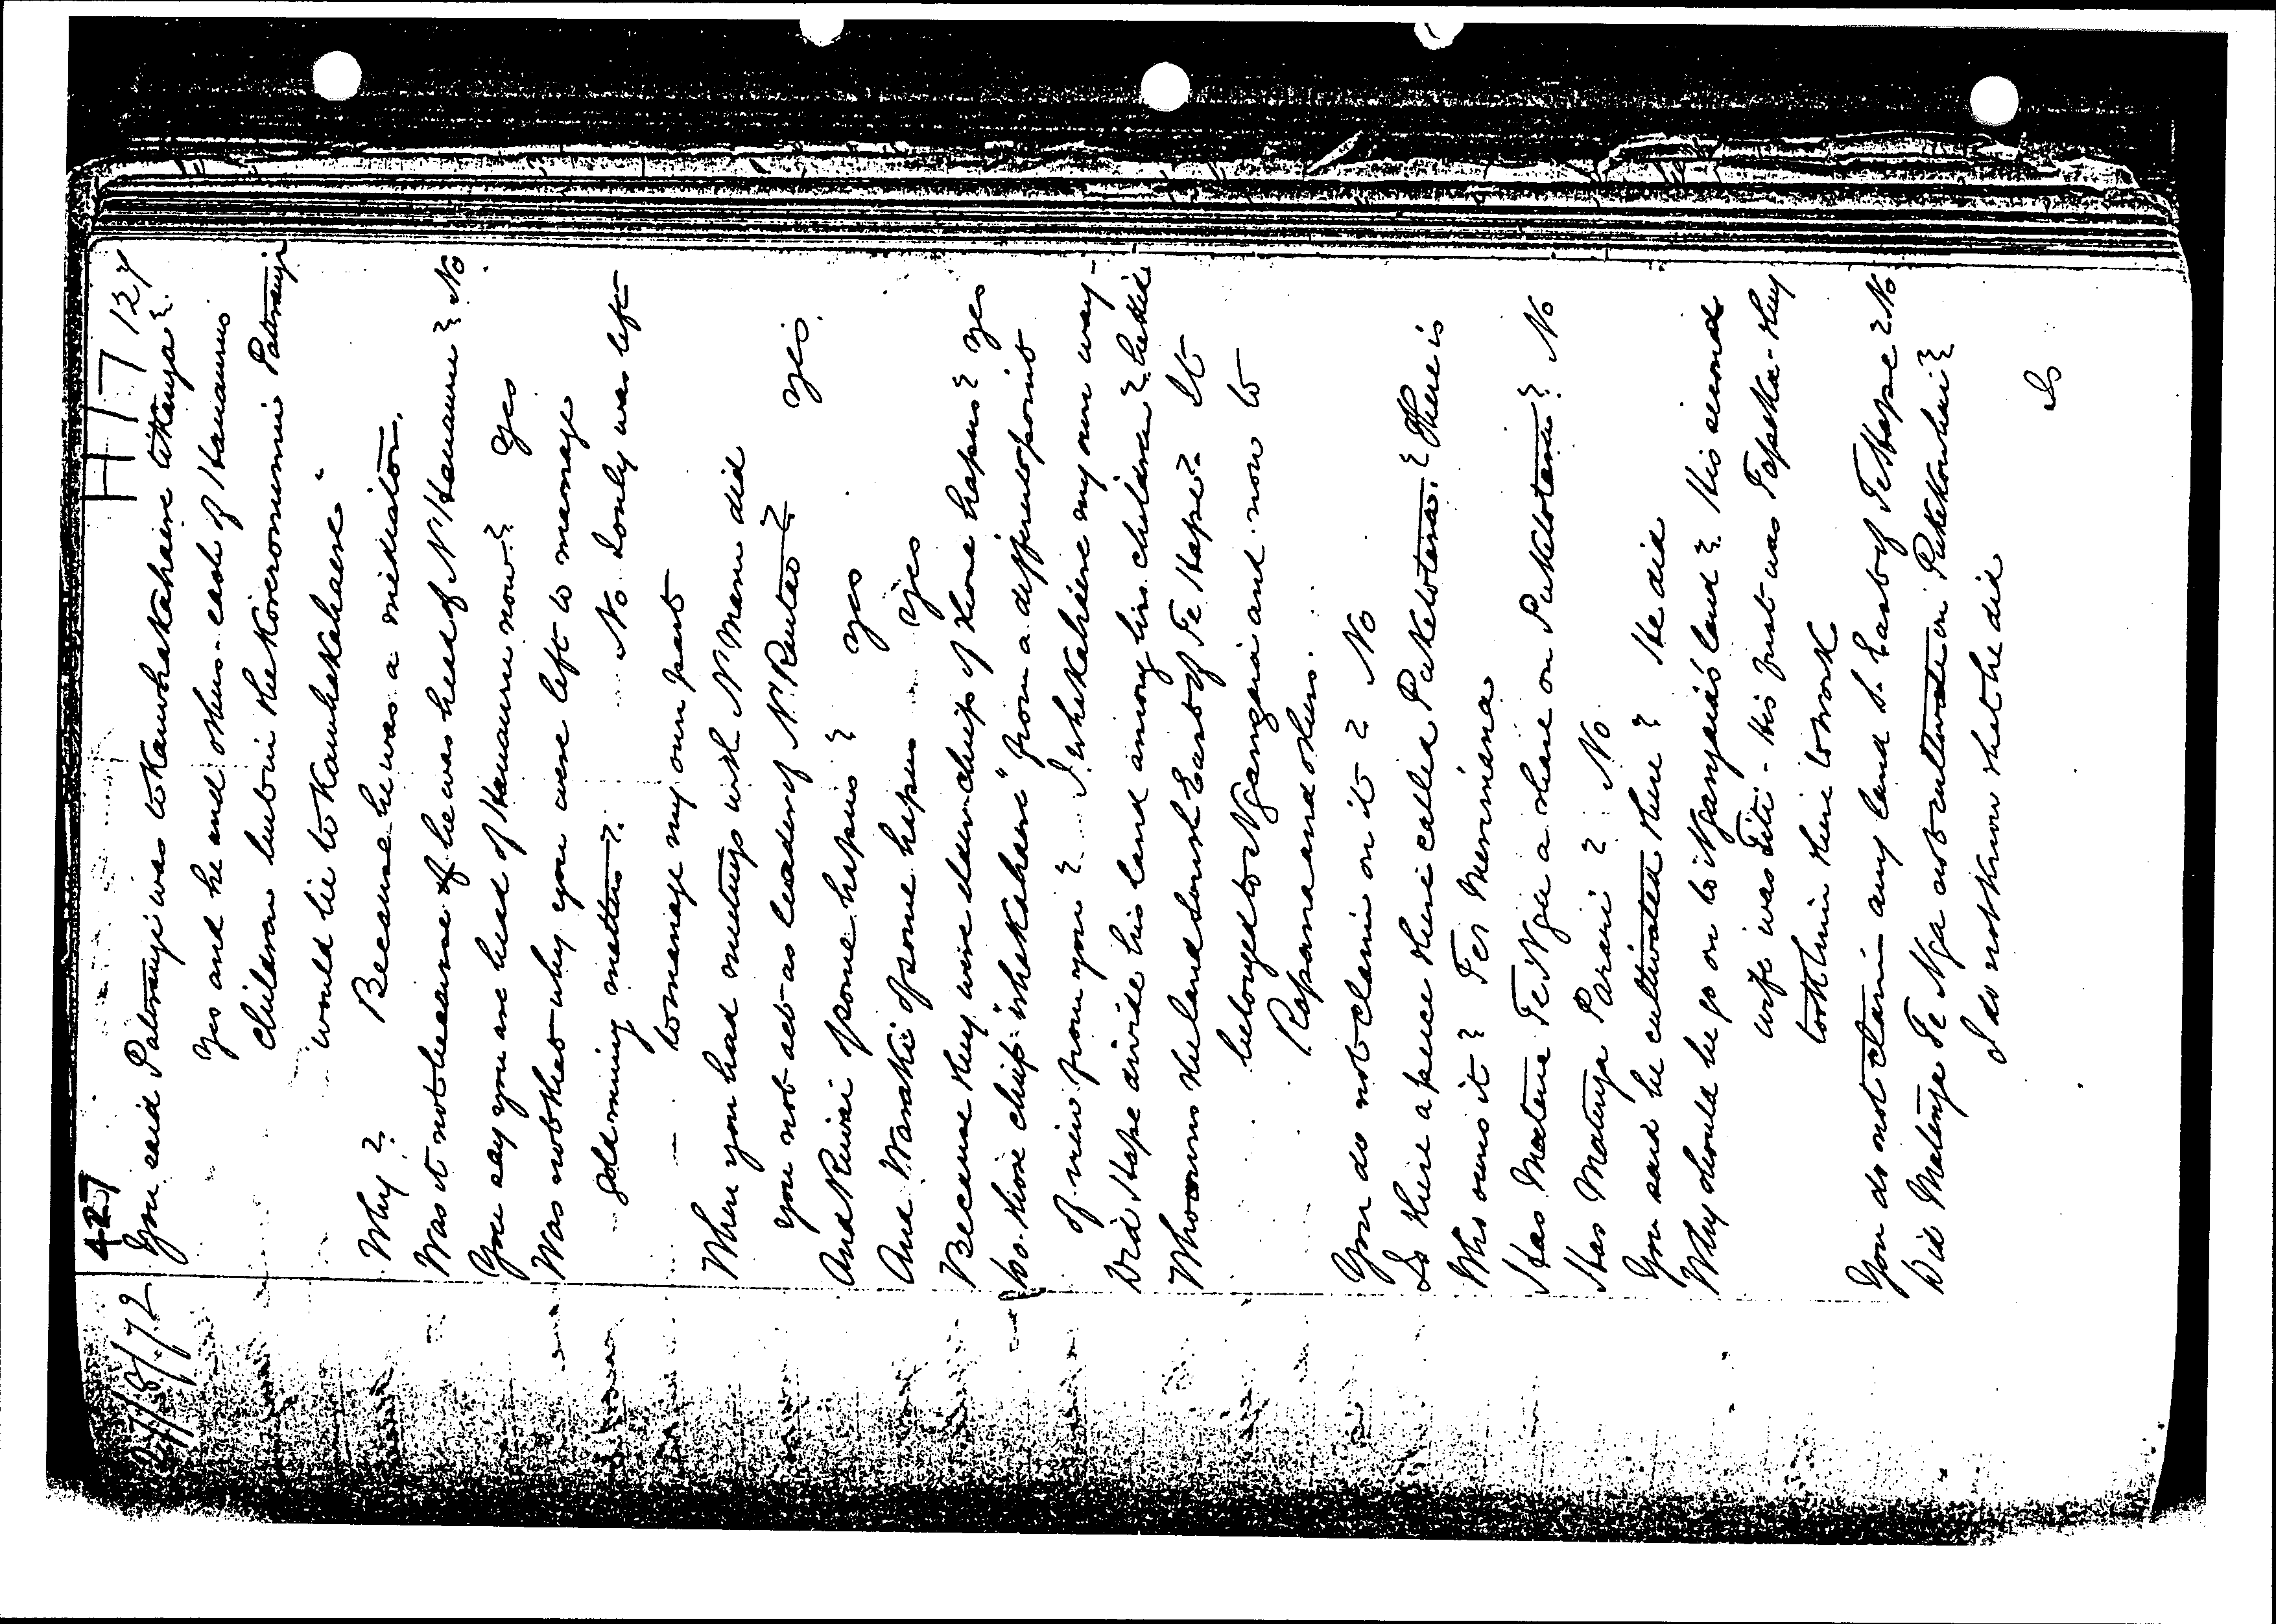 27/8/72 427 H 7 127
You said Patoranji was to Kauwhakahaere tikanga?
Yes and he and others - each of Hauauru's
children but in the Koreromini
would lie to Kauhakahaere
Why? Because he was a mediator.
Was it not because he was head of N'Hauauru? No
You say you are head of Hauauru now? Yes
Was not that why you were left to manage
gold mining matters? No I only was left
to manage my own part
When you had meetings with N'Maru did
you not act as leader of N' ? Yes.
And of some hapus? Yes
And Waraki of some hapus Yes
Because they were chiefs of those hapus? Yes
Do those chiefs "whakahaere" from a different point
of view from you? I whakahaere my own way -
Did Hape divide his land among his children? he did
Who owns the land South East of Te Hape? It
belonged to Ngangaia and now to
Ropana and others.
You do not claim on it? No
Is there a piece there called Puketotara? There is
Who owns it? Ter
Has Matene Te Nga a share on Puketotara? No
Has Matenga ? No
You said he cultivated there? He did
Why should he go on to Ngangaia's land? His second
wife was Titi - his first was - they
took him there to work
You do not claim any land S. East of Te Hape? No
Did Matenga Te Nga not cultivate in ?
I do not know that he did
Is